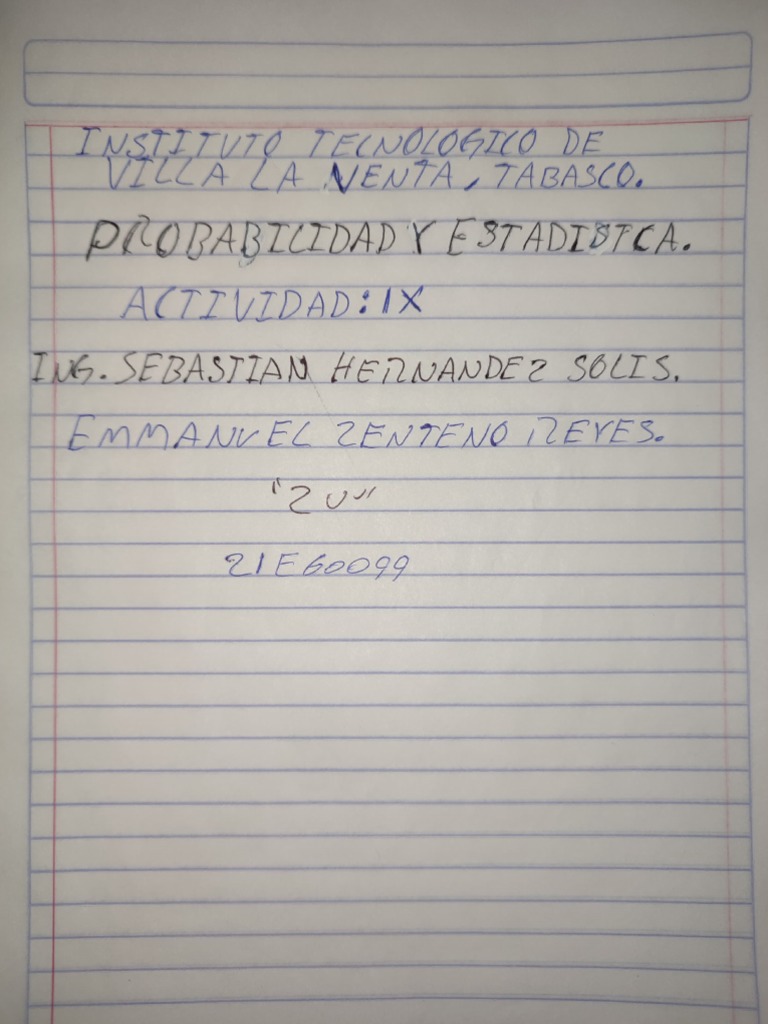 INSTITUTO TECNOLOGICO DE
VILLA LA VENTA, TABASCO.
PROBABILIDAD Y ESTADISTICA.
ACTIVIDAD: IX
ING. SEBASTIAN HERNANDEZ SOLIS.
EMMANUEL ZENTENO REYES.
"2U"
21E60099